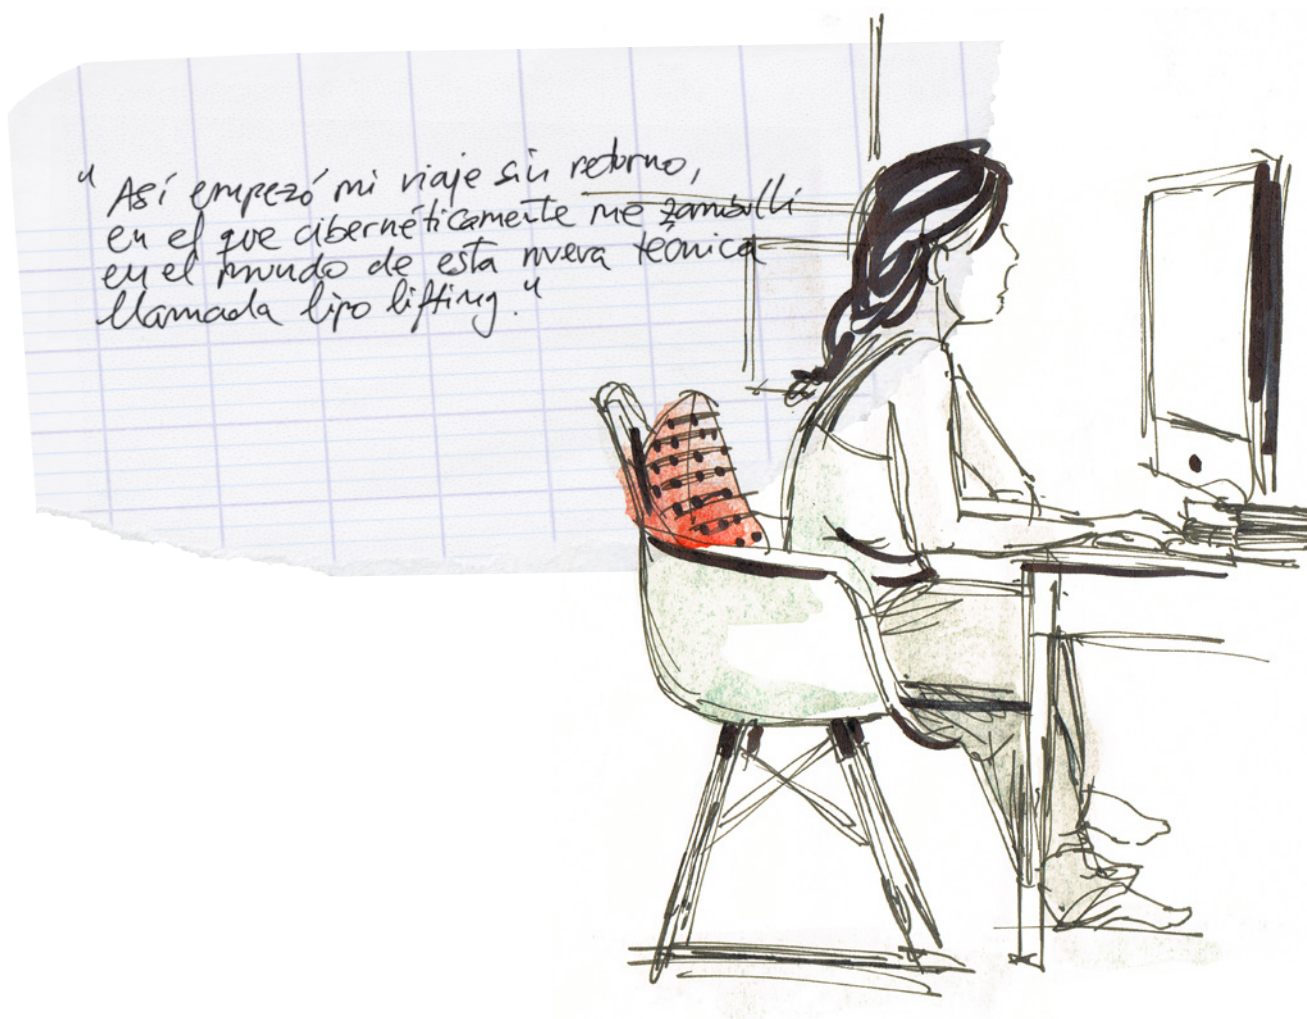 "Así empezó mi viaje sin retorno,
en el que cibernéticamente me zambullí
en el mundo de esta nueva técnica
llamada lipo lifting."